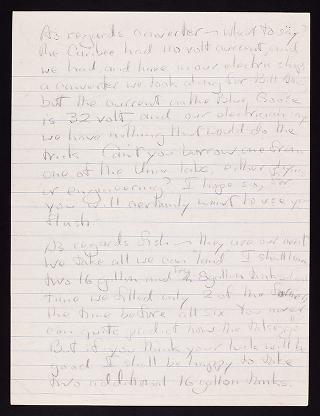 As regards converter — what to say?
The Caribee had 110 volt current, and
we had, and have in our electric shop
a converter we took along for Bill
but the current on the Blue Goose
is 32 volt and our electrician says
we have nothing that would do the
trick. Can't you borrow one from
one of the Univ. labs, either
or engineering? I hope so, for
you will certainly want to use your
flash.
As regards fish — they are our meat
We take all we can land. I shall have
two 16 gallon and 8 gallon tanks.
time we filled only 2 of the
the time before all six. You never
can quite predict how the
But if you think your luck will be
good I shall be happy to take
two additional 16 gallon tanks.